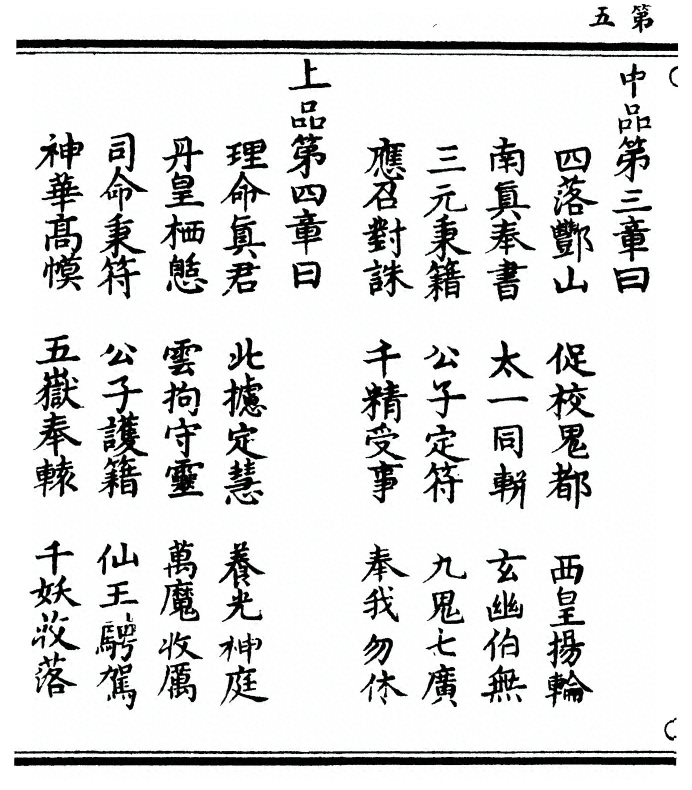 第五
中品第三章曰
四落酆山 促校鬼都 西皇揚輪
南眞奉書 太一同軿 玄幽伯無
三元秉籍 公子定符 九鬼七廣
應召對誅 千精受事 奉我勿休
上品第四章曰
理命眞君 北據定慧 養光神庭
丹皇栖態 雲拘守靈 萬魔收厲
司命秉符 公子護籍 仙王騁駕
神華髙幙 五嶽奉轅 千妖收落